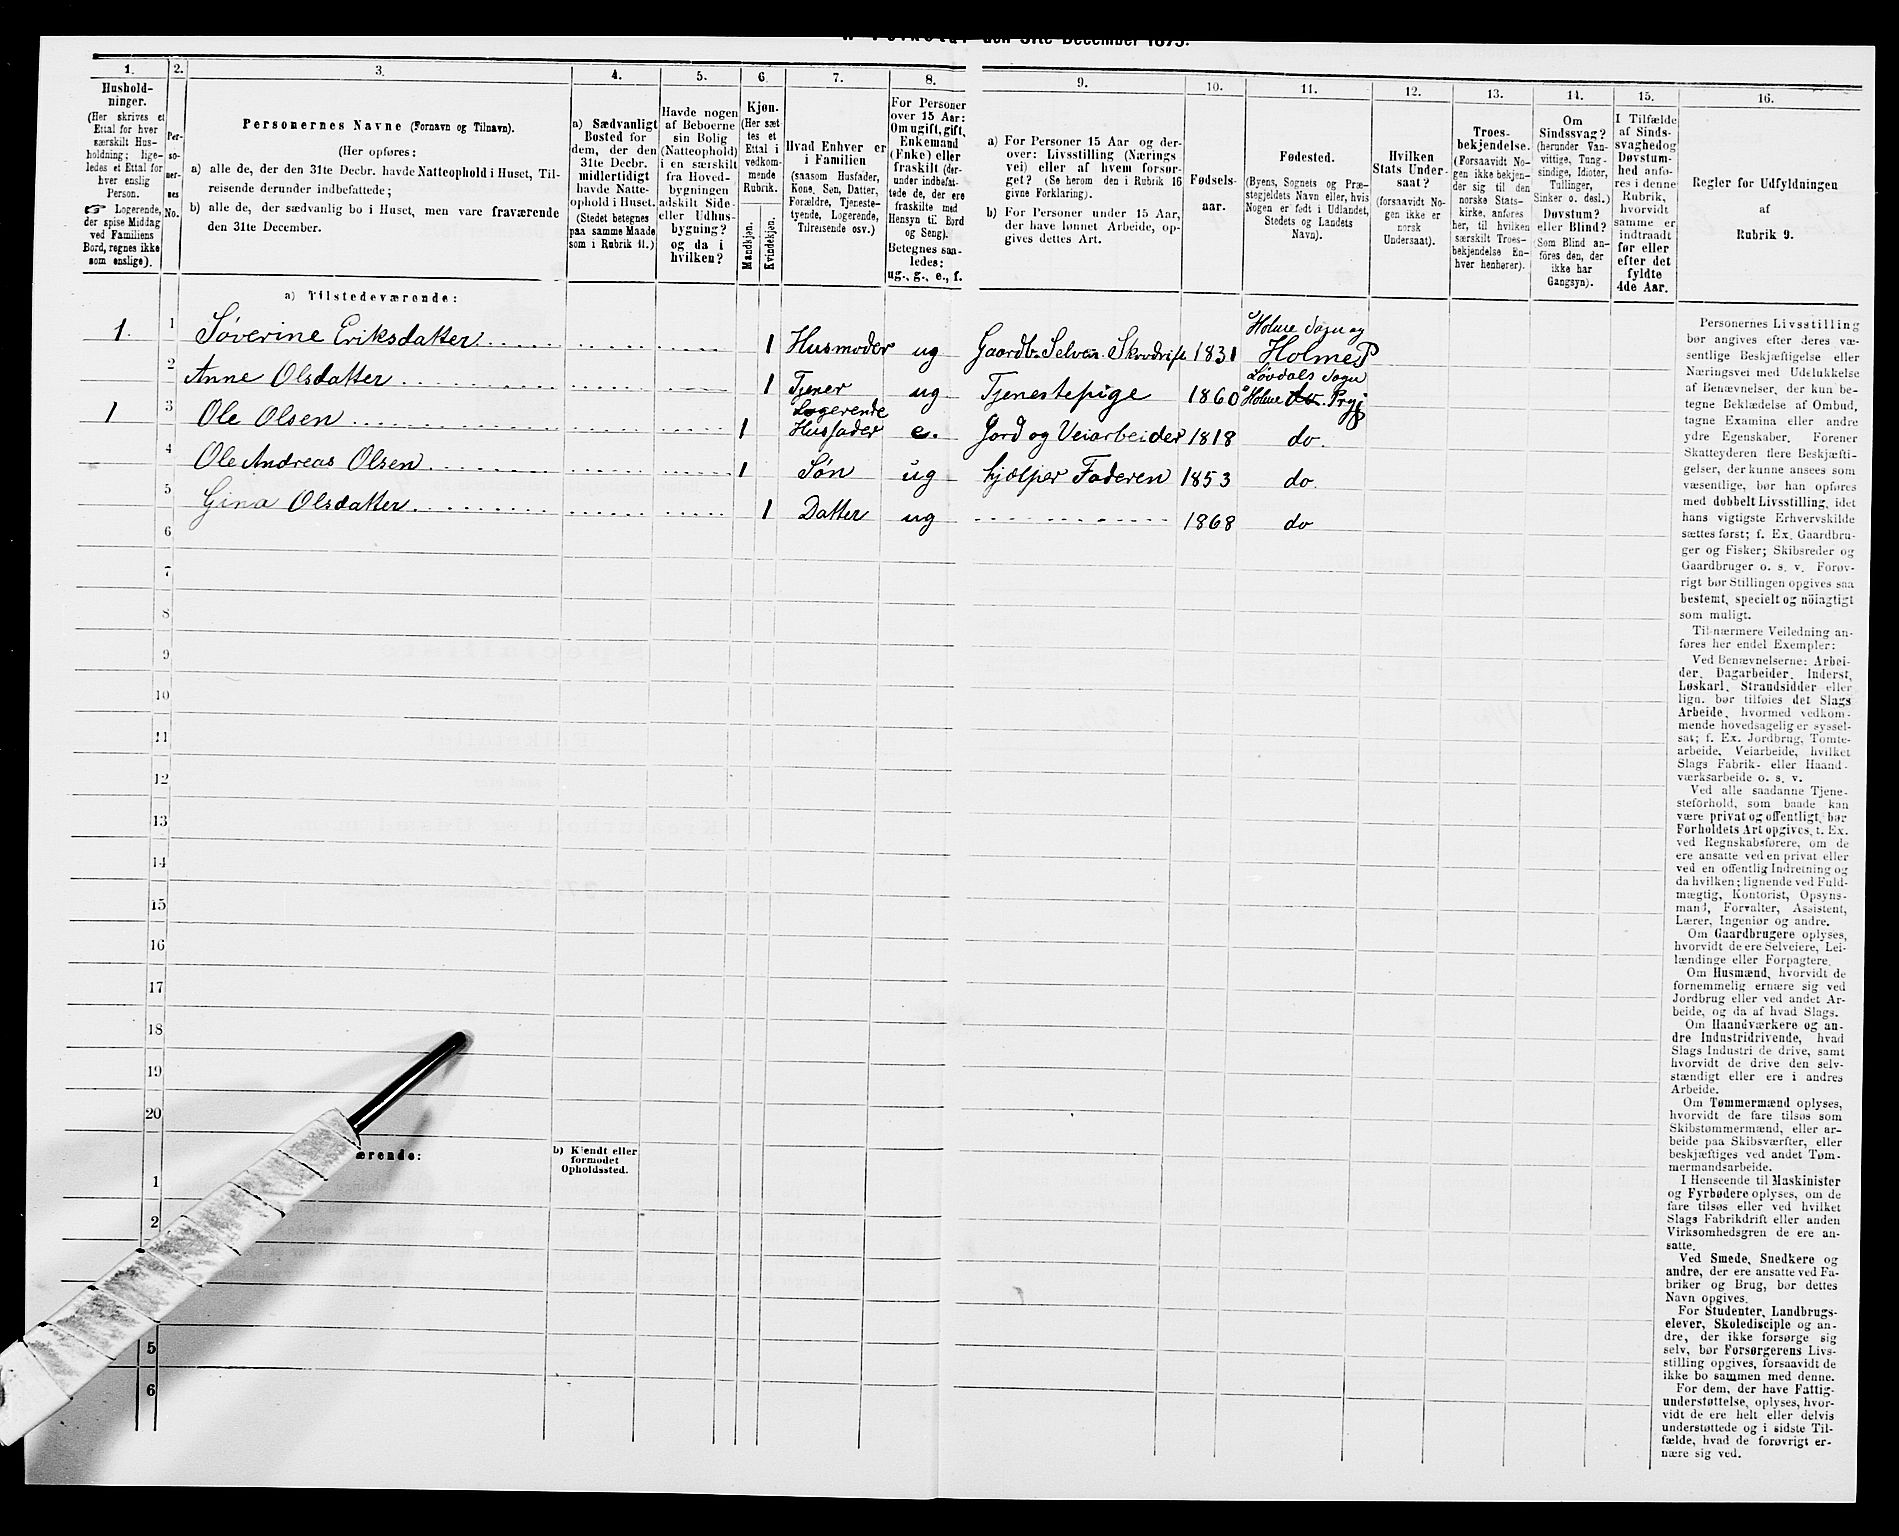 den 31te December 1875.
1.
Hushold-
ninger.
(Her skrives et
Ettal for hver
særskilt Hus-
holdning; lige-
ledes et Ettal for
hver enslig
Person.
☞ Logerende,
der spise Middag
ved Familiens
Bord, regnes ikke
som enslige).
2.
Per-
so-
ner-
nes
No.
3.
Personernes Navne (Fornavn og Tilnavn).
(Her opføres:
a) alle de, der den 31te Decbr. havde Natteophold i Huset, Til-
reisende derunder indbefattede;
b) alle de, der sædvanlig bo i Huset, men vare fraværende
den 31te December.
4.
a) Sædvanligt
Bosted for
dem, der den
31te Decbr.
midlertidigt
havde Natte-
ophold i Huset.
(Stedet betegnes
paa samme Maade
som i Rubrik 11.)
5.
Havde nogen
af Beboerne
sin Bolig
(Natteophold)
i en særskilt
fra Hoved-
bygningen
adskilt Side-
eller Udhus-
bygning?
og da i
hvilken?
6.
Kjøn.
(Her sæt-
tes et
Ettal i
vedkom-
mende
Rubrik.
Mandkjøn.
Kvindekjøn.
7.
Hvad Enhver er
i Familien
(saasom Husfader,
Kone, Søn, Datter,
Forældre, Tjeneste-
tyende, Logerende,
Tilreisende osv.)
8.
For Personer
over 15 Aar:
Om ugift, gift,
Enkemand
(Enke) eller
fraskilt (der-
under indbefat-
tede de, der ere
fraskilte med
Hensyn til Bord
og Seng).
Betegnes saa-
ledes:
ug., g., e., f.
9.
a) For Personer 15 Aar og der-
over: Livsstilling (Nærings
vei) eller af hvem forsør-
get? (Se herom den i Rubrik 16
givne Forklaring).
b) For Personer under 15 Aar,
der have lønnet Arbeide, op-
gives dettes Art.
10.
Fødsels-
aar.
11.
Fødested.
(Byens, Sognets og Præ-
stegjeldets Navn eller, hvis
Nogen er født i Udlandet,
Stedets og Landets
Navn).
12.
Hvilken
Stats Under-
saat?
(forsaavidt No-
gen ikke er
norsk
Undersaat).
13.
Troes-
bekjendelse.
(Forsaavidt No-
gen ikke bekjen-
der sig til den
norske Stats-
kirke, anføres
her, til hvilken
særskilt Troes-
bekjendelse En-
hver henhører).
14.
Om
Sindssvag?
(herunder Van-
vittige, Tung-
sindige, Idioter,
Tullinger,
Sinker o. desl.)
Døvstum?
eller Blind?
(Som Blind an-
føres den, der
ikke har
Gangsyn).
15.
I Tilfælde
af Sinds-
svaghed og
Døvstum-
hed anfø-
res i denne
Rubrik,
hvorvidt
samme er
indtraadt
før eller
efter det
fyldte
4de Aar.
16.
Regler for Udfyldningen
af
Rubrik 9.
a) Tilstedeværende:
1. 1 Søverine Eriksdatter 1 Husmoder ug Gaardb. Selvei. Skovdrift 1831 Holme Sogn og
Holme P
2 Anne Olsdatter 1 Tjener ug Tjenestepige 1860 Løvdals Sogn
Holme Prgj
1 3 Ole Olsen 1 Logerende
Husfader e. Jord og Veiarbeider 1818 do.
4 Ole Andreas Olsen 1 Søn ug hjælper Faderen 1853 do.
5 Gina Olsdatter 1 Datter ug 1868 do
6
7
8
9
10
11
12
13
14
15
16
17
18
19
20
ærende:
b) Kjendt eller
formodet
Opholdssted.
1
2
5
6
Personernes Livsstilling
bør angives efter deres væ-
sentlige Beskjæftigelse eller
Næringsvei med Udelukkelse
af Benævnelser, der kun be-
tegne Beklædelse af Ombud,
tagne Examina eller andre
ydre Egenskaber. Forener
Skatteyderen flere Beskjæfti-
gelser, der kunne ansees som
væsentlige, bør han opføres
med dobbelt Livsstilling, idet
hans vigtigste Erhvervskilde
sættes først; f. Ex. Gaardbru-
ger og Fisker; Skibsreder og
Gaardbruger o. s. v. Forøv-
rigt bør Stillingen opgives saa
bestemt, specielt og nöiagtigt
som muligt.
Til nærmere Veiledning an-
føres her endel Exempler:
Ved Benævnelserne: Arbei-
der, Dagarbeider, Inderst,
Løskarl, Strandsidder eller
lign. bør tilføies det Slags
Arbeide, hvormed vedkom-
mende hovedsagelig er syssel-
sat; f. Ex. Jordbrug, Tomte-
arbeide, Veiarbeide, hvilket
Slags Fabrik- eller Haand-
værksarbeide o. s. v.
Ved alle saadanne Tjene-
steforhold, som baade kan
være privat og offentligt, bør
Forholdets Art opgives, t. Ex.
ved Regnskabsførere, om de
ere ansatte ved en privat eller
ved en offentlig Indretning og
da hvilken; lignende ved Fuld-
mægtig, Kontorist, Opsyns-
mand, Forvalter, Assistent,
Lærer, Ingeniør og andre.
Om Gaardbrugere oplyses,
hvorvidt de ere Selveiere, Lei-
lændinge eller Forpagtere.
Om Husmænd, hvorvidt de
fornemmelig ernære sig ved
Jordbrug eller ved andet Ar-
beide, og da af hvad Slags.
Om Haandværkere og an-
dre Industridrivende, hvad
Slags Industri de drive, samt
hvorvidt de drive den selv-
stændigt eller ere i andres
Arbeide.
Om Tømmermænd oplyses,
hvorvidt de fare tilsøs som
Skibstømmermænd, eller ar-
beide paa Skibsværfter, eller
beskjæftiges ved andet Tøm-
mermandsarbeide.
I Henseende til Maskinister
og Fyrbødere oplyses, om de
fare tilsøs eller ved hvilket
Slags Fabrikdrift eller anden
Virksomhedsgren de ere an-
satte.
Ved Smede, Snedkere og
andre, der ere ansatte ved Fa-
briker og Brug, bør dettes
Navn opgives.
For Studenter, Landbrugs-
elever, Skoledisciple og an-
dre, der ikke forsørge sig
selv, bør Forsørgerens Livs-
stilling opgives, forsaavidt de
ikke bo sammen med denne.
For dem, der have Fattig-
understøttelse, oplyses, hvor-
vidt de ere helt eller delvis
understøttede og i sidste Til-
fælde, hvad de forøvrigt er-
nære sig ved.